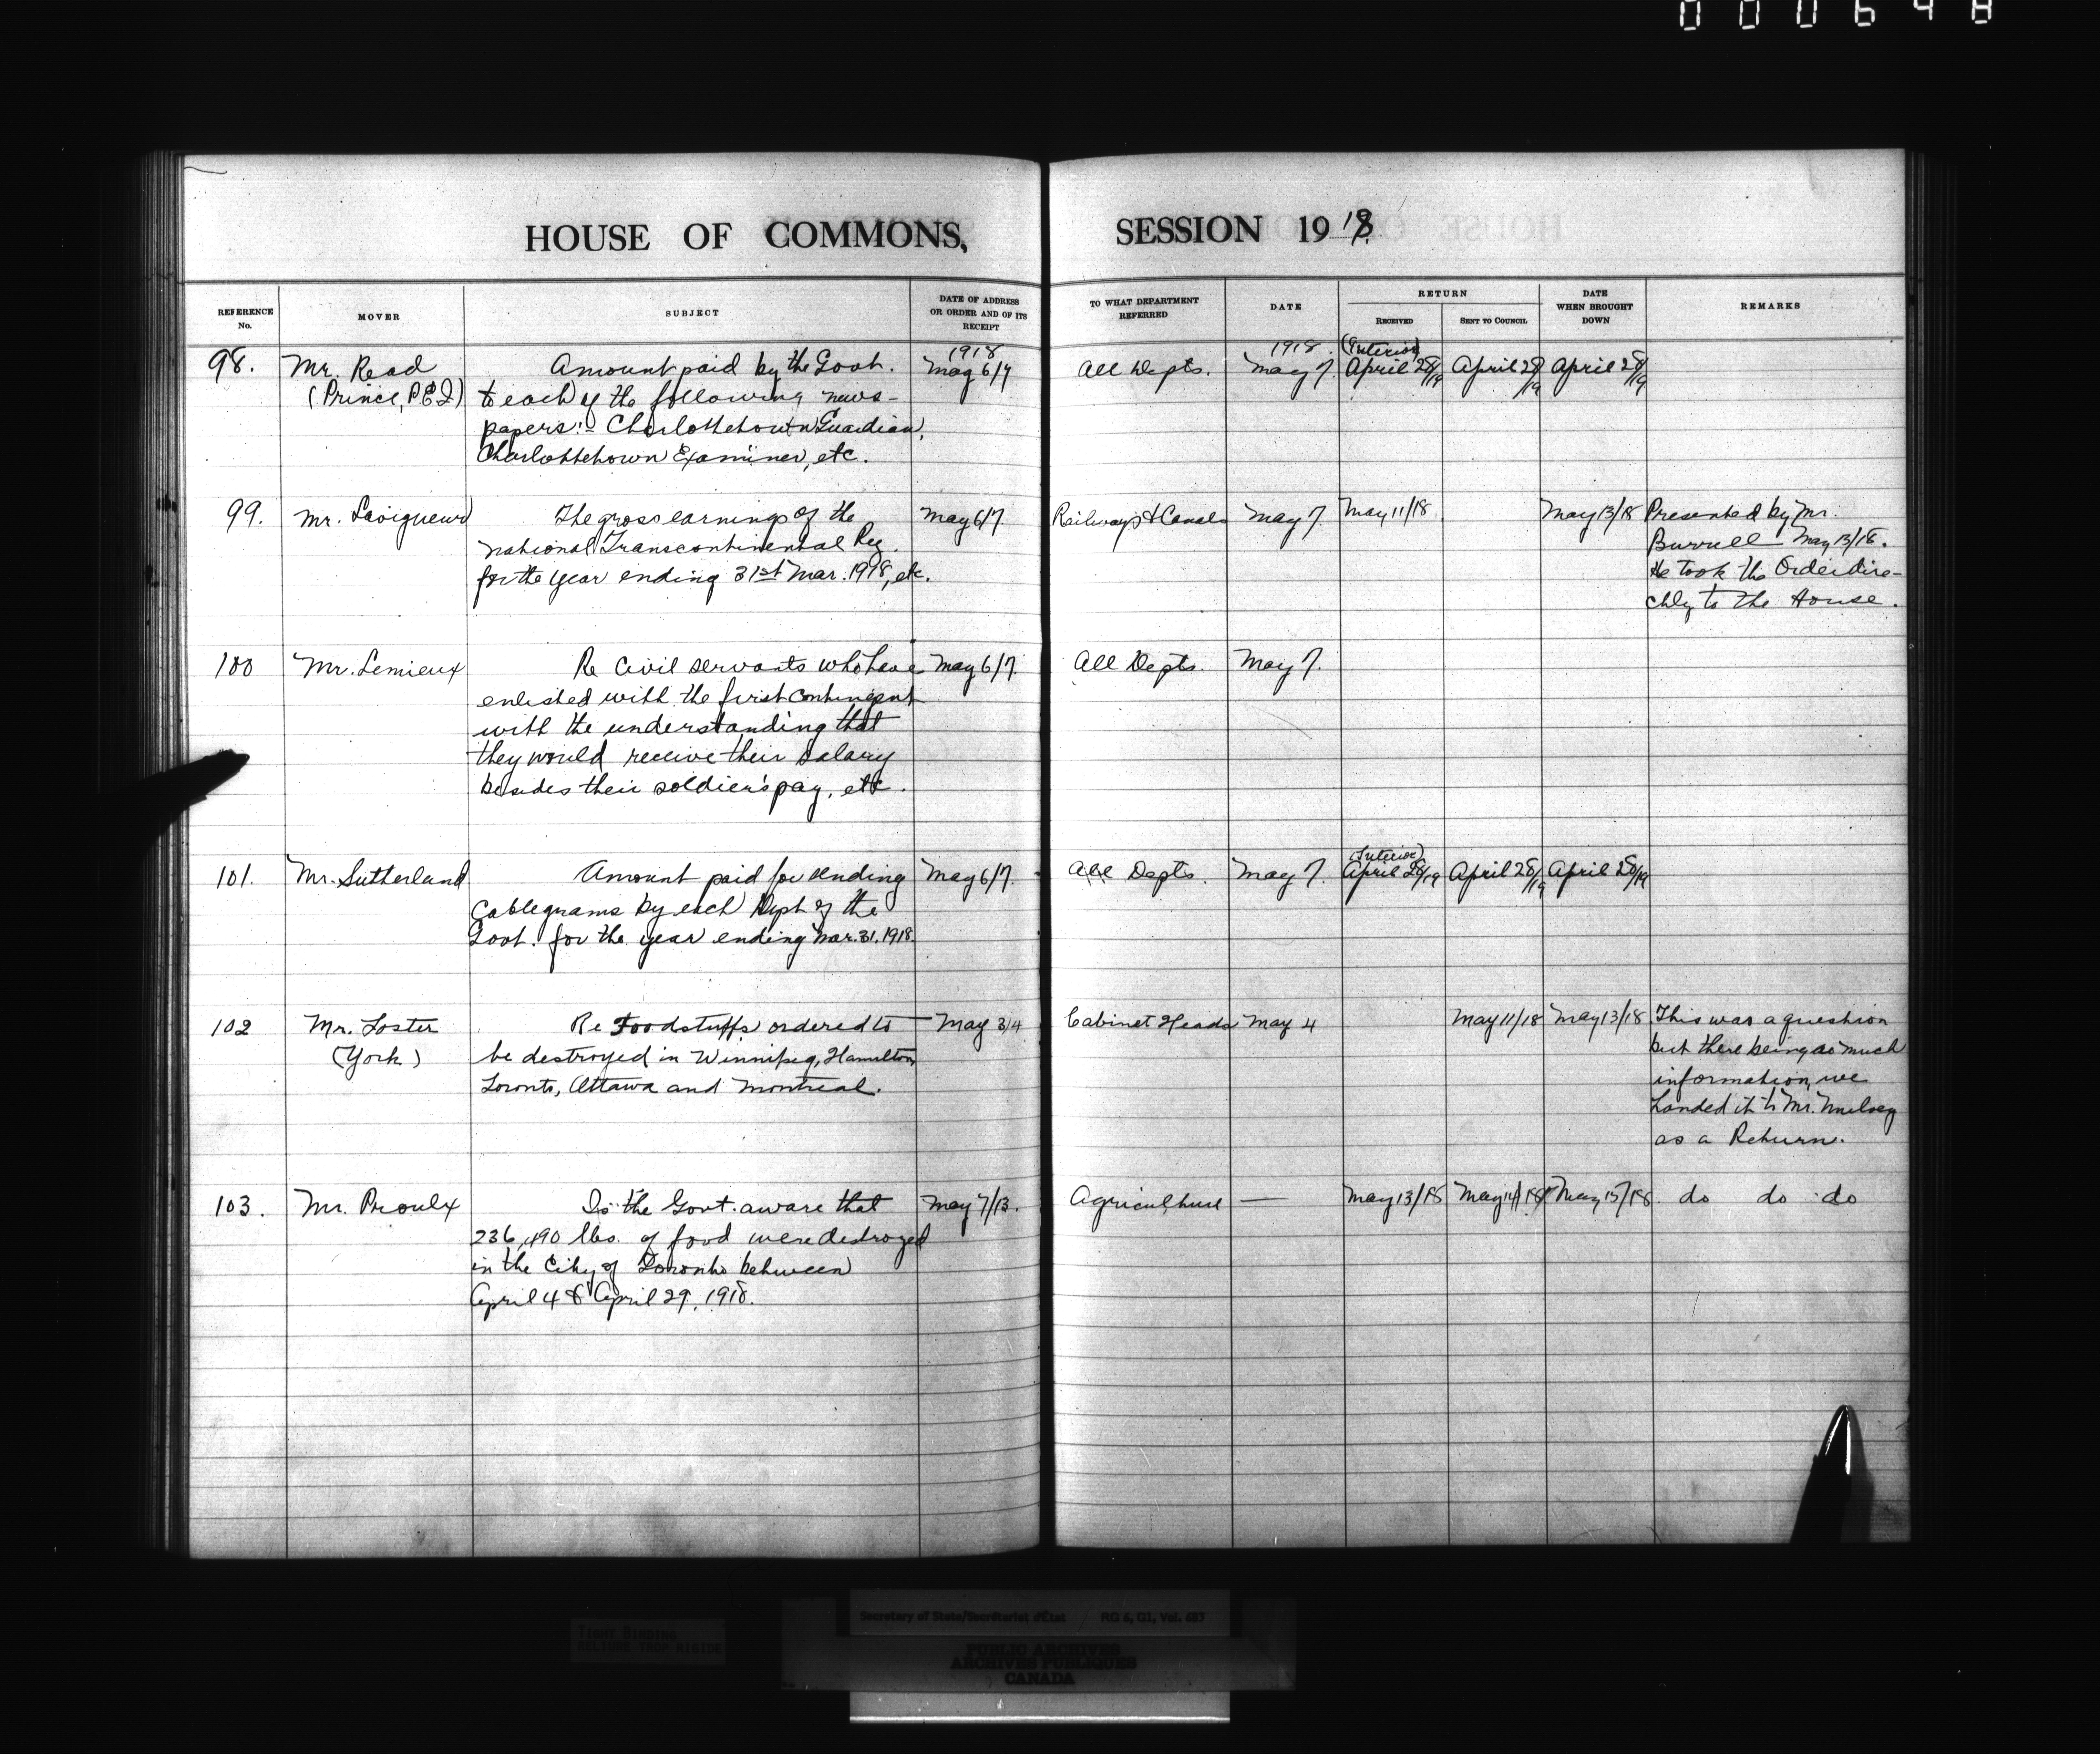 000648
HOUSE OF COMMONS, SESSION 1918
REFERENCE No.
MOVER
SUBJECT
DATE OF ADDRESS OR ORDER AND OF ITS RECEIPT
TO WHAT DEPARTMENT REFERRED
DATE
RETURN
RECEIVED
SENT TO COUNCIL
DATE WHEN BROUGHT DOWN
REMARKS
98.
Mr. Read
(Prince, P.E.I)
Amount paid by the Govt.
to each of the following news-
papers:- Charlottetown Guardian,
Charlottetown Examiner, etc.
1918
May 6/7
All Depts.
1918.
May 7.
(Interior)
April 28/19
April 28/19
April 28/19
99.
Mr. Lavigueur
The gross earnings of the
National Transcontinental Ry.
for the year ending 31st Mar. 1918, etc.
May 6/7.
Railways & Canals
May 7.
May 11/18.
May 13/18
Presented by Mr.
Burrell May 13/18.
He took the Order dire-
ctly to the House.
100
Mr. Lemieux
Re Civil servants who have
enlisted with the first contingent
with the understanding that
they would receive their salary
besides their soldier's pay, etc.
May 6/7.
All Depts.
May 7.
101.
Mr. Sutherland
Amount paid for sending
Cablegrams by each Dept. of the
Govt. for the year ending Mar. 31. 1918.
May 6/7.
All Depts.
May 7.
(Interior)
April 28/19
April 28/19
April 28/19
102
Mr. Foster
(York)
Re Foodstuffs ordered to
be destroyed in Winnipeg, Hamilton,
Toronto, Ottawa and Montreal.
May 3/4
Cabinet Heads
May 4
May 11/18
May 13/18
This was a question
but there being so much
information, we
handed it to Mr.
as a Return.
103.
Mr. Proulx
Is the Govt. aware that
236,490 lbs. of food were destroyed
in the City of Toronto between
April 4 & April 29, 1918.
May 7/13.
Agriculture
—
May 13/18
May 14/18
May 15/18
do do do
Secretary of State/Secrétariat d'État RG 6, G1, Vol. 683
TIGHT BINDING
RELIURE TROP RIGIDE
PUBLIC ARCHIVES
ARCHIVES PUBLIQUES
CANADA